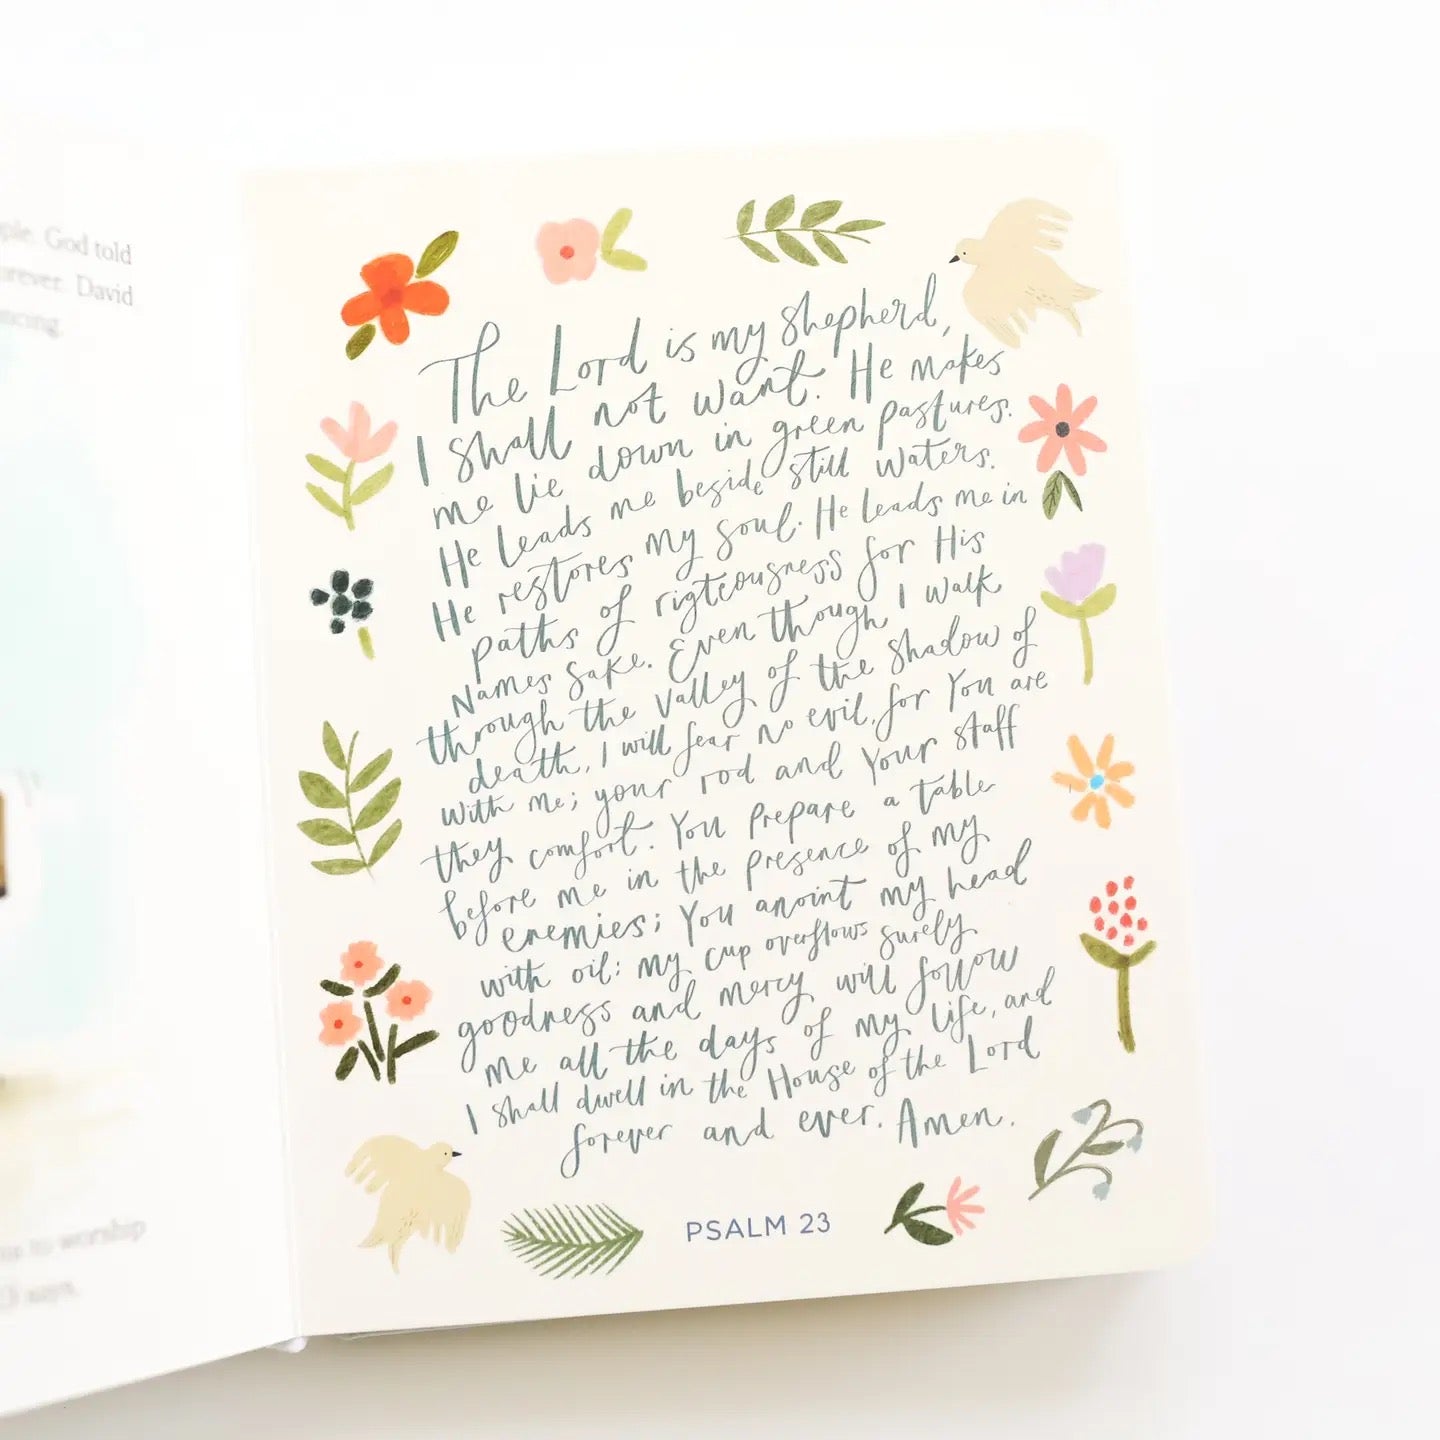 ple. God told
orever. David
ncing.
to worship
says.
The Lord is my shepherd,
I shall not want. He makes
me lie down in green pastures.
He leads me beside still waters.
He restores my soul. He leads me in
paths of rigteousness for His
Names sake. Even though I walk
through the valley of the shadow of
death, I will fear no evil, for You are
with me; your rod and Your staff
they comfort. You prepare a table
before me in the presence of my
enemies; You anoint my head
with oil: my cup overflows surely
goodness and mercy will follow
me all the days of my life, and
I shall dwell in the House of the Lord
forever and ever. Amen.
PSALM 23